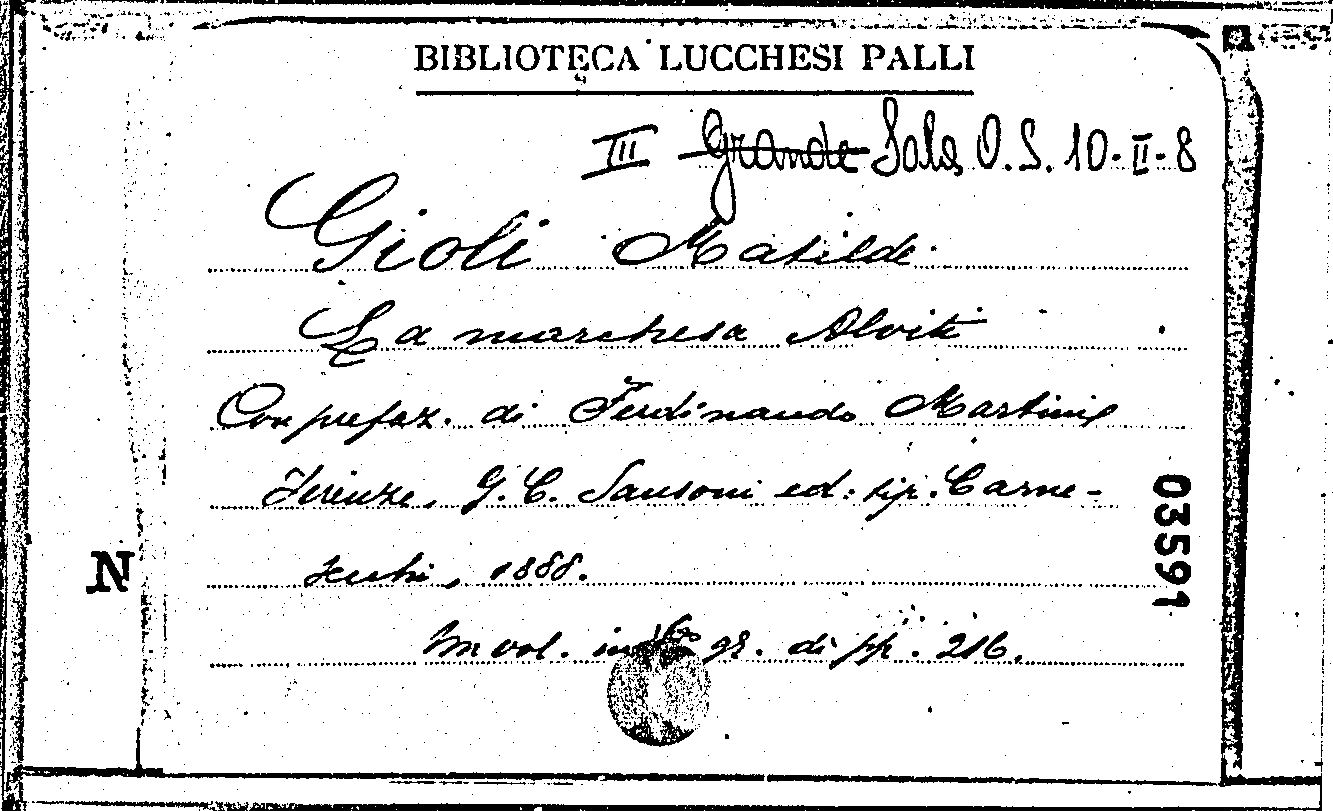 BIBLIOTECA LUCCHESI PALLI
III Grande Sala O.S. 10-II-8
Gioli Matilde
La marchesa Alviti
Con prefaz. di Ferdinando Martini
Firenze, G. C. Sansoni ed: tip. Carne-
secchi, 1888.
Un vol. in 16º gr. di pp. 216.
N
03591